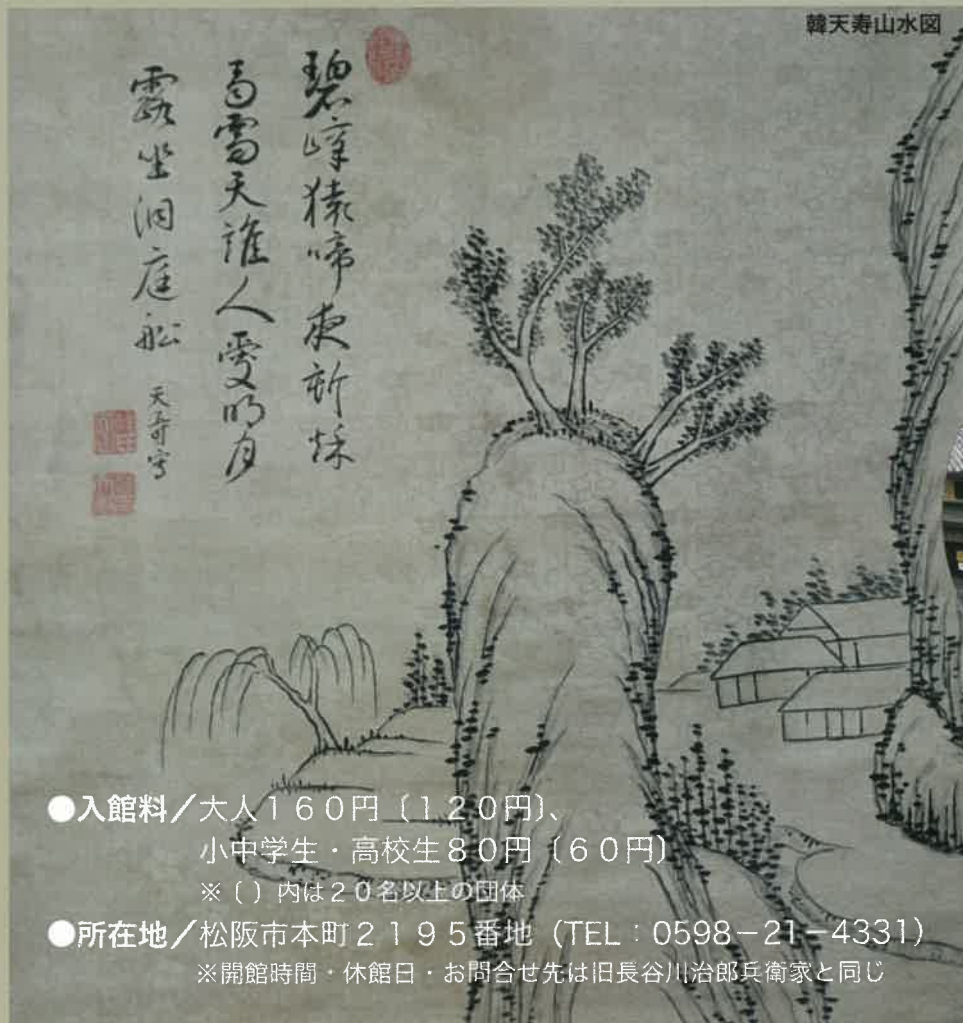 韓天寿山水図
碧峰猿啼夜新
天誰人明月
露坐洞庭船
天寿写
●入館料／大人１６０円〔１２０円〕、
小中学生・高校生８０円〔６０円〕
※〔 〕内は２０名以上の団体
●所在地／松阪市本町２１９５番地（TEL：0598−21−4331）
※開館時間・休館日・お問合せ先は旧長谷川治郎兵衛家と同じ